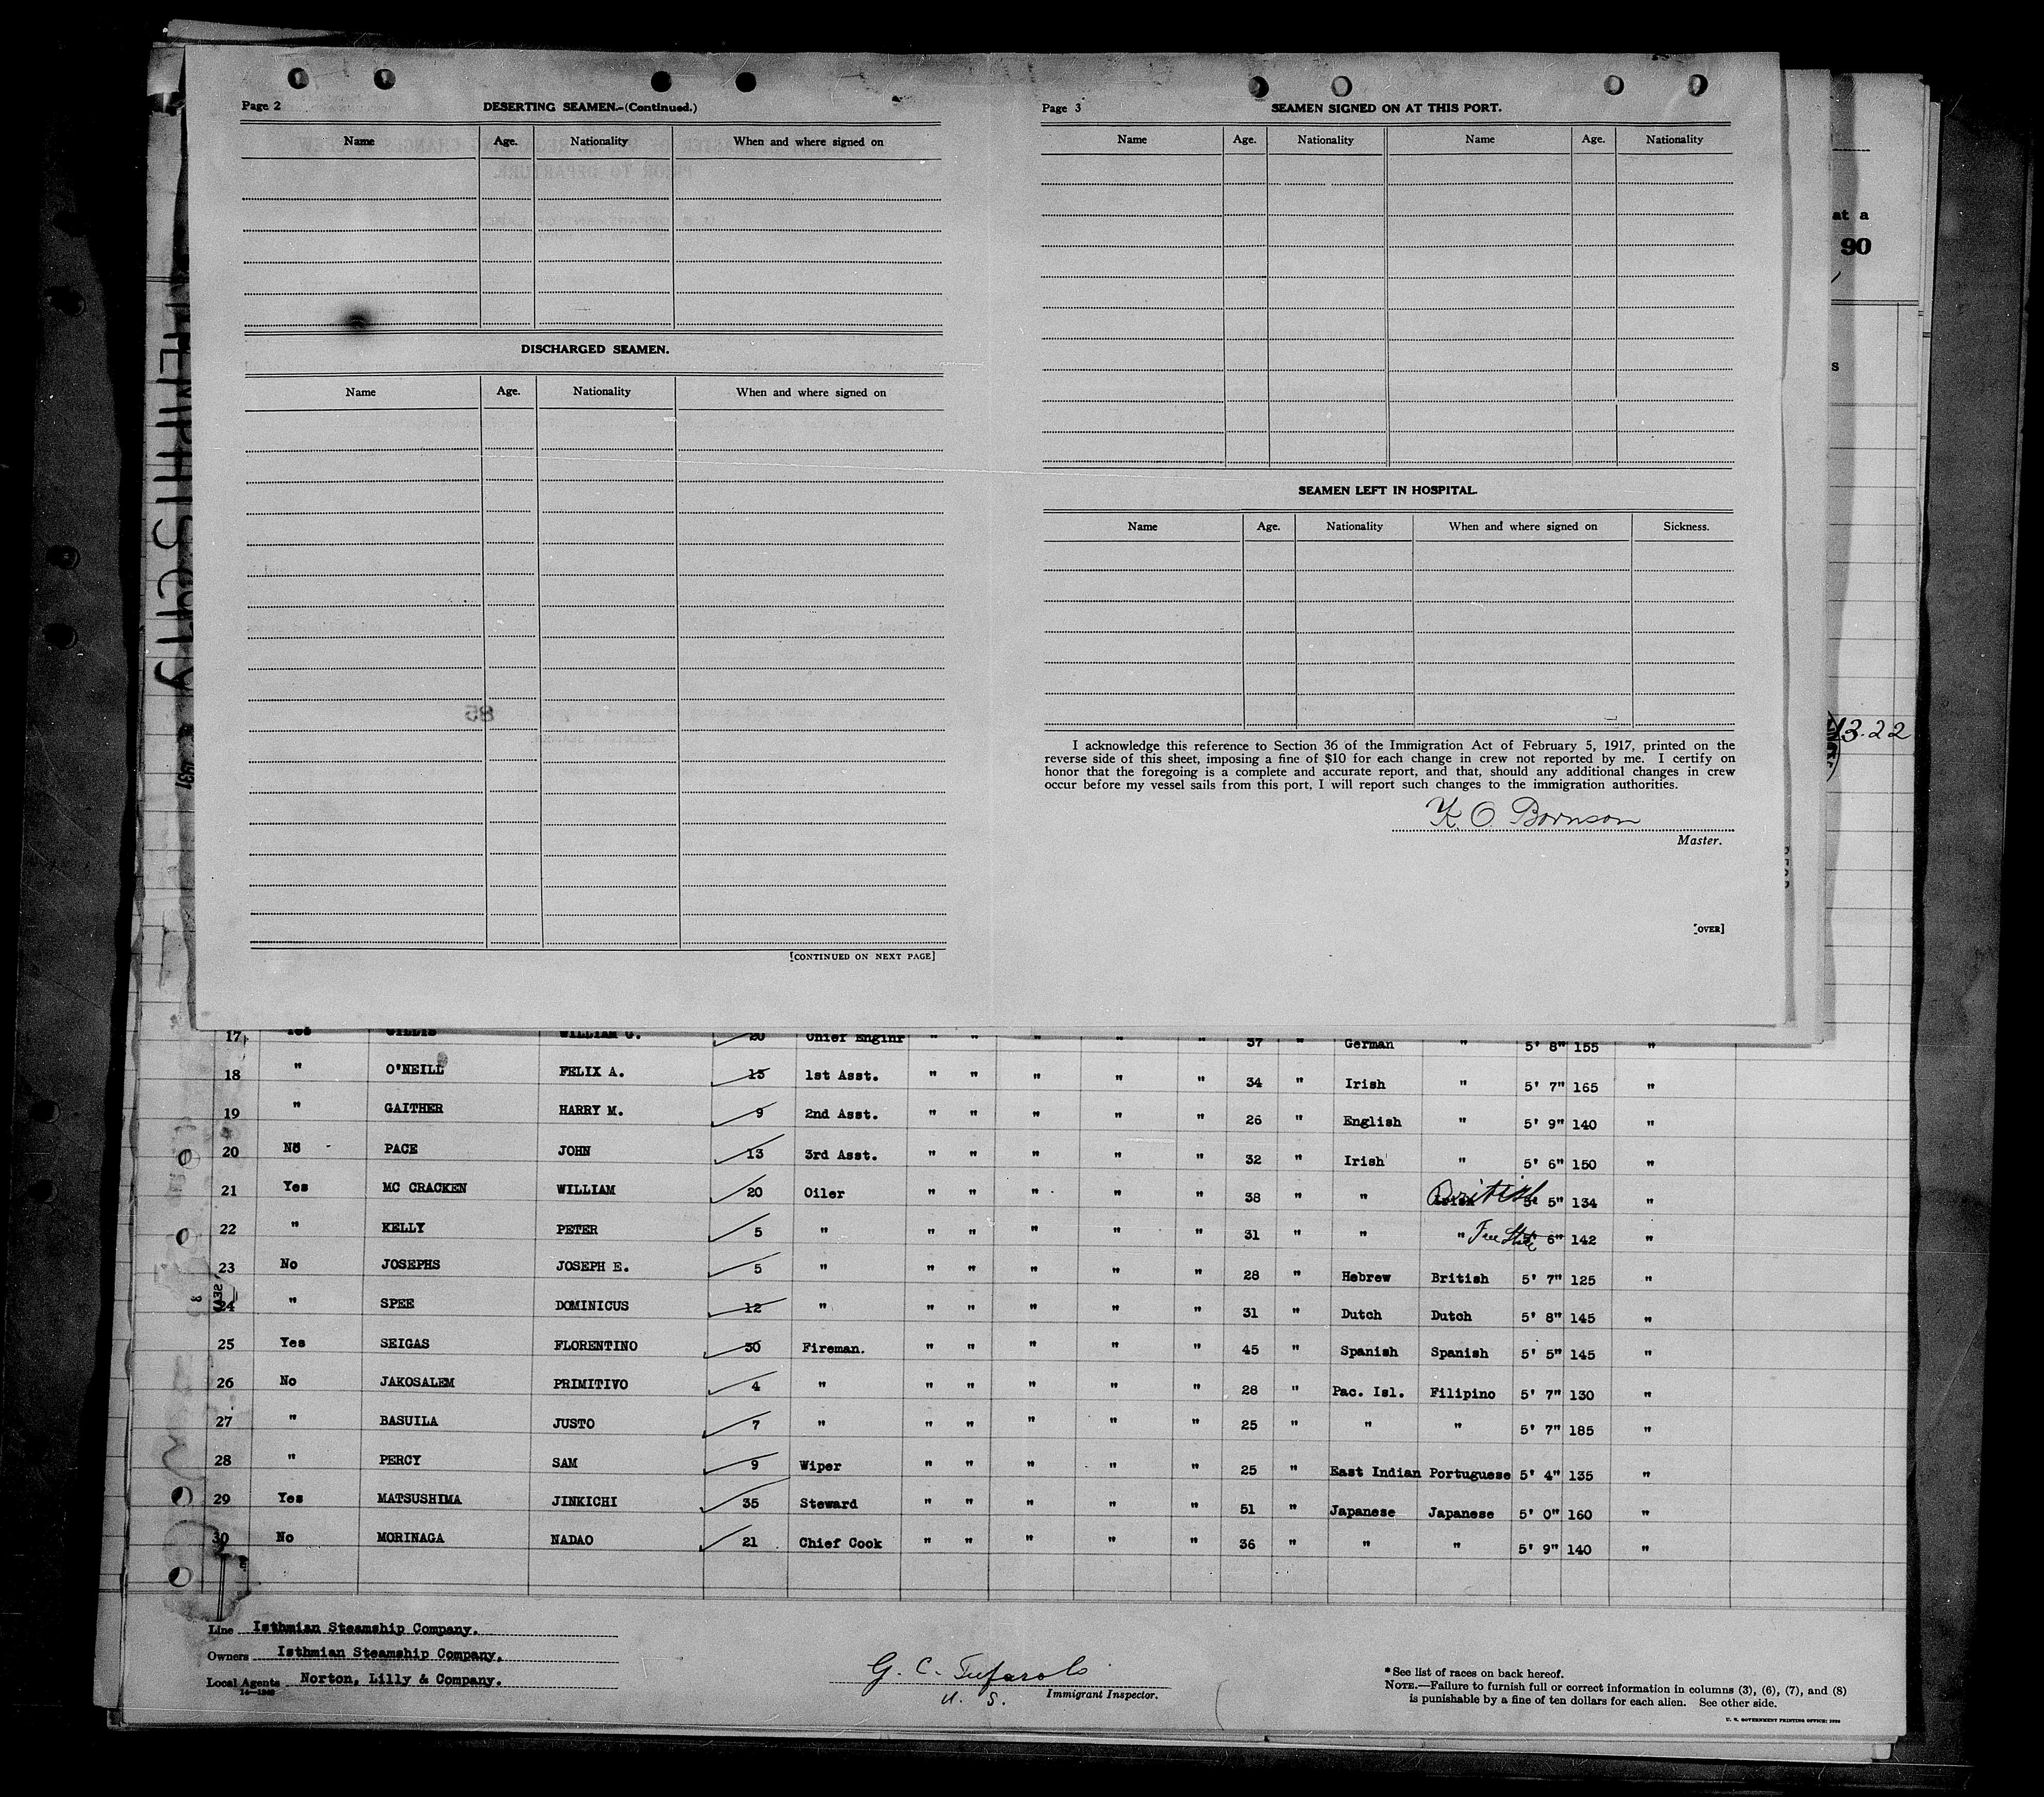 Page 2 DESERTING SEAMEN.-(Continued.)
Name Age. Nationality When and where signed on
DISCHARGED SEAMEN.
Name Age. Nationality When and where signed on
85
[CONTINUED ON NEXT PAGE]
Page 3 SEAMEN SIGNED ON AT THIS PORT.
Name Age. Nationality Name Age. Nationality
SEAMEN LEFT IN HOSPITAL.
Name Age. Nationality When and where signed on Sickness.
I acknowledge this reference to Section 36 of the Immigration Act of February 5, 1917, printed on the
reverse side of this sheet, imposing a fine of $10 for each change in crew not reported by me. I certify on
honor that the foregoing is a complete and accurate report, and that, should any additional changes in crew
occur before my vessel sails from this port, I will report such changes to the immigration authorities.
K. O. Bornson
Master.
[OVER]
at a
90
s
13.22
MEMPHIS CITY
17 Yes GILLIS WILLIAM G. 20 Chief Enginr " " " " " 37 " German " 5' 8" 155 "
18 " O'NEILL FELIX A. 13 1st Asst. " " " " " 34 " Irish " 5' 7" 165 "
19 " GAITHER HARRY M. 9 2nd Asst. " " " " " 26 " English " 5' 9" 140 "
20 No PACE JOHN 13 3rd Asst. " " " " " 32 " Irish " 5' 6" 150 "
21 Yes MC CRACKEN WILLIAM 20 Oiler " " " " " 38 " " British 5' 5" 134 "
22 " KELLY PETER 5 " " " " " " 31 " " " Free State 5' 6" 142 "
23 No JOSEPHS JOSEPH E. 5 " " " " " " 28 " Hebrew British 5' 7" 125 "
24 " SPEE DOMINICUS 12 " " " " " " 31 " Dutch Dutch 5' 8" 145 "
25 Yes SEIGAS FLORENTINO 30 Fireman. " " " " " 45 " Spanish Spanish 5' 5" 145 "
26 No JAKOSALEM PRIMITIVO 4 " " " " " " 28 " Pac. Isl. Filipino 5' 7" 130 "
27 " BASUILA JUSTO 7 " " " " " " 25 " " " 5' 7" 185 "
28 " PERCY SAM 9 Wiper " " " " " 25 " East Indian Portuguese 5' 4" 135 "
29 Yes MATSUSHIMA JINKICHI 35 Steward " " " " " 51 " Japanese Japanese 5' 0" 160 "
30 No MORINAGA NADAO 21 Chief Cook " " " " " 36 " " " 5' 9" 140 "
Line Isthmian Steamship Company.
Owners Isthmian Steamship Company.
Local Agents Norton, Lilly & Company.
G. C. Tufarolo
U. S. Immigrant Inspector.
* See list of races on back hereof.
NOTE.—Failure to furnish full or correct information in columns (3), (6), (7), and (8)
is punishable by a fine of ten dollars for each alien. See other side.